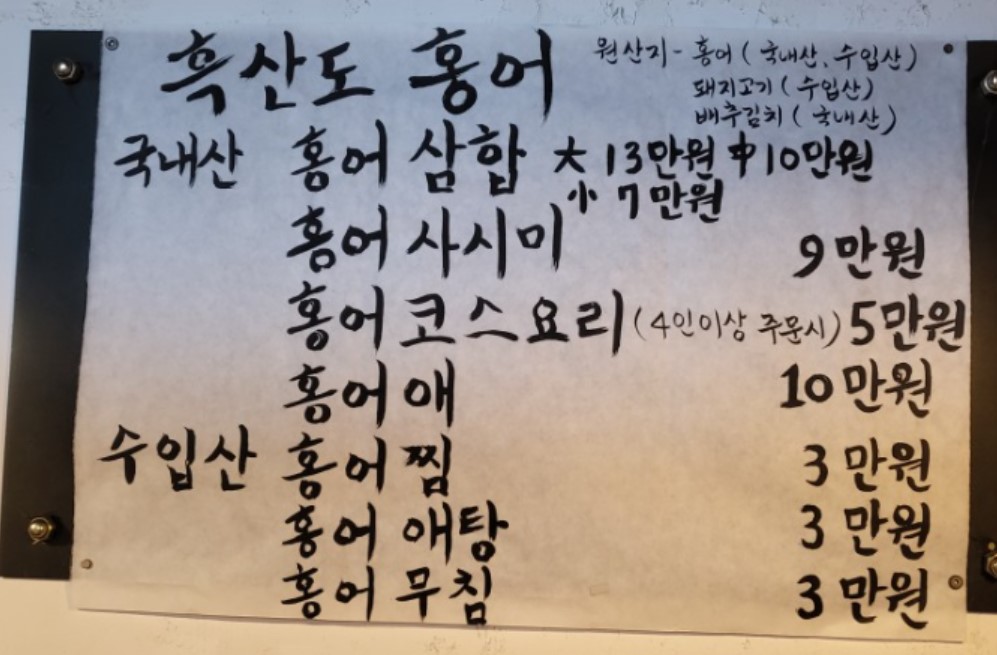 흑산도 홍어
원산지 - 홍어 ( 국내산, 수입산 )
돼지고기 ( 수입산 )
배추김치 ( 국내산 )
국내산 홍어 삼합 大 13만원 中 10만원
小 7만원
홍어 사시미 9만원
홍어 코스요리 (4인이상 주문시) 5만원
홍어 애 10만원
수입산 홍어 찜 3만원
홍어 애탕 3만원
홍어 무침 3만원